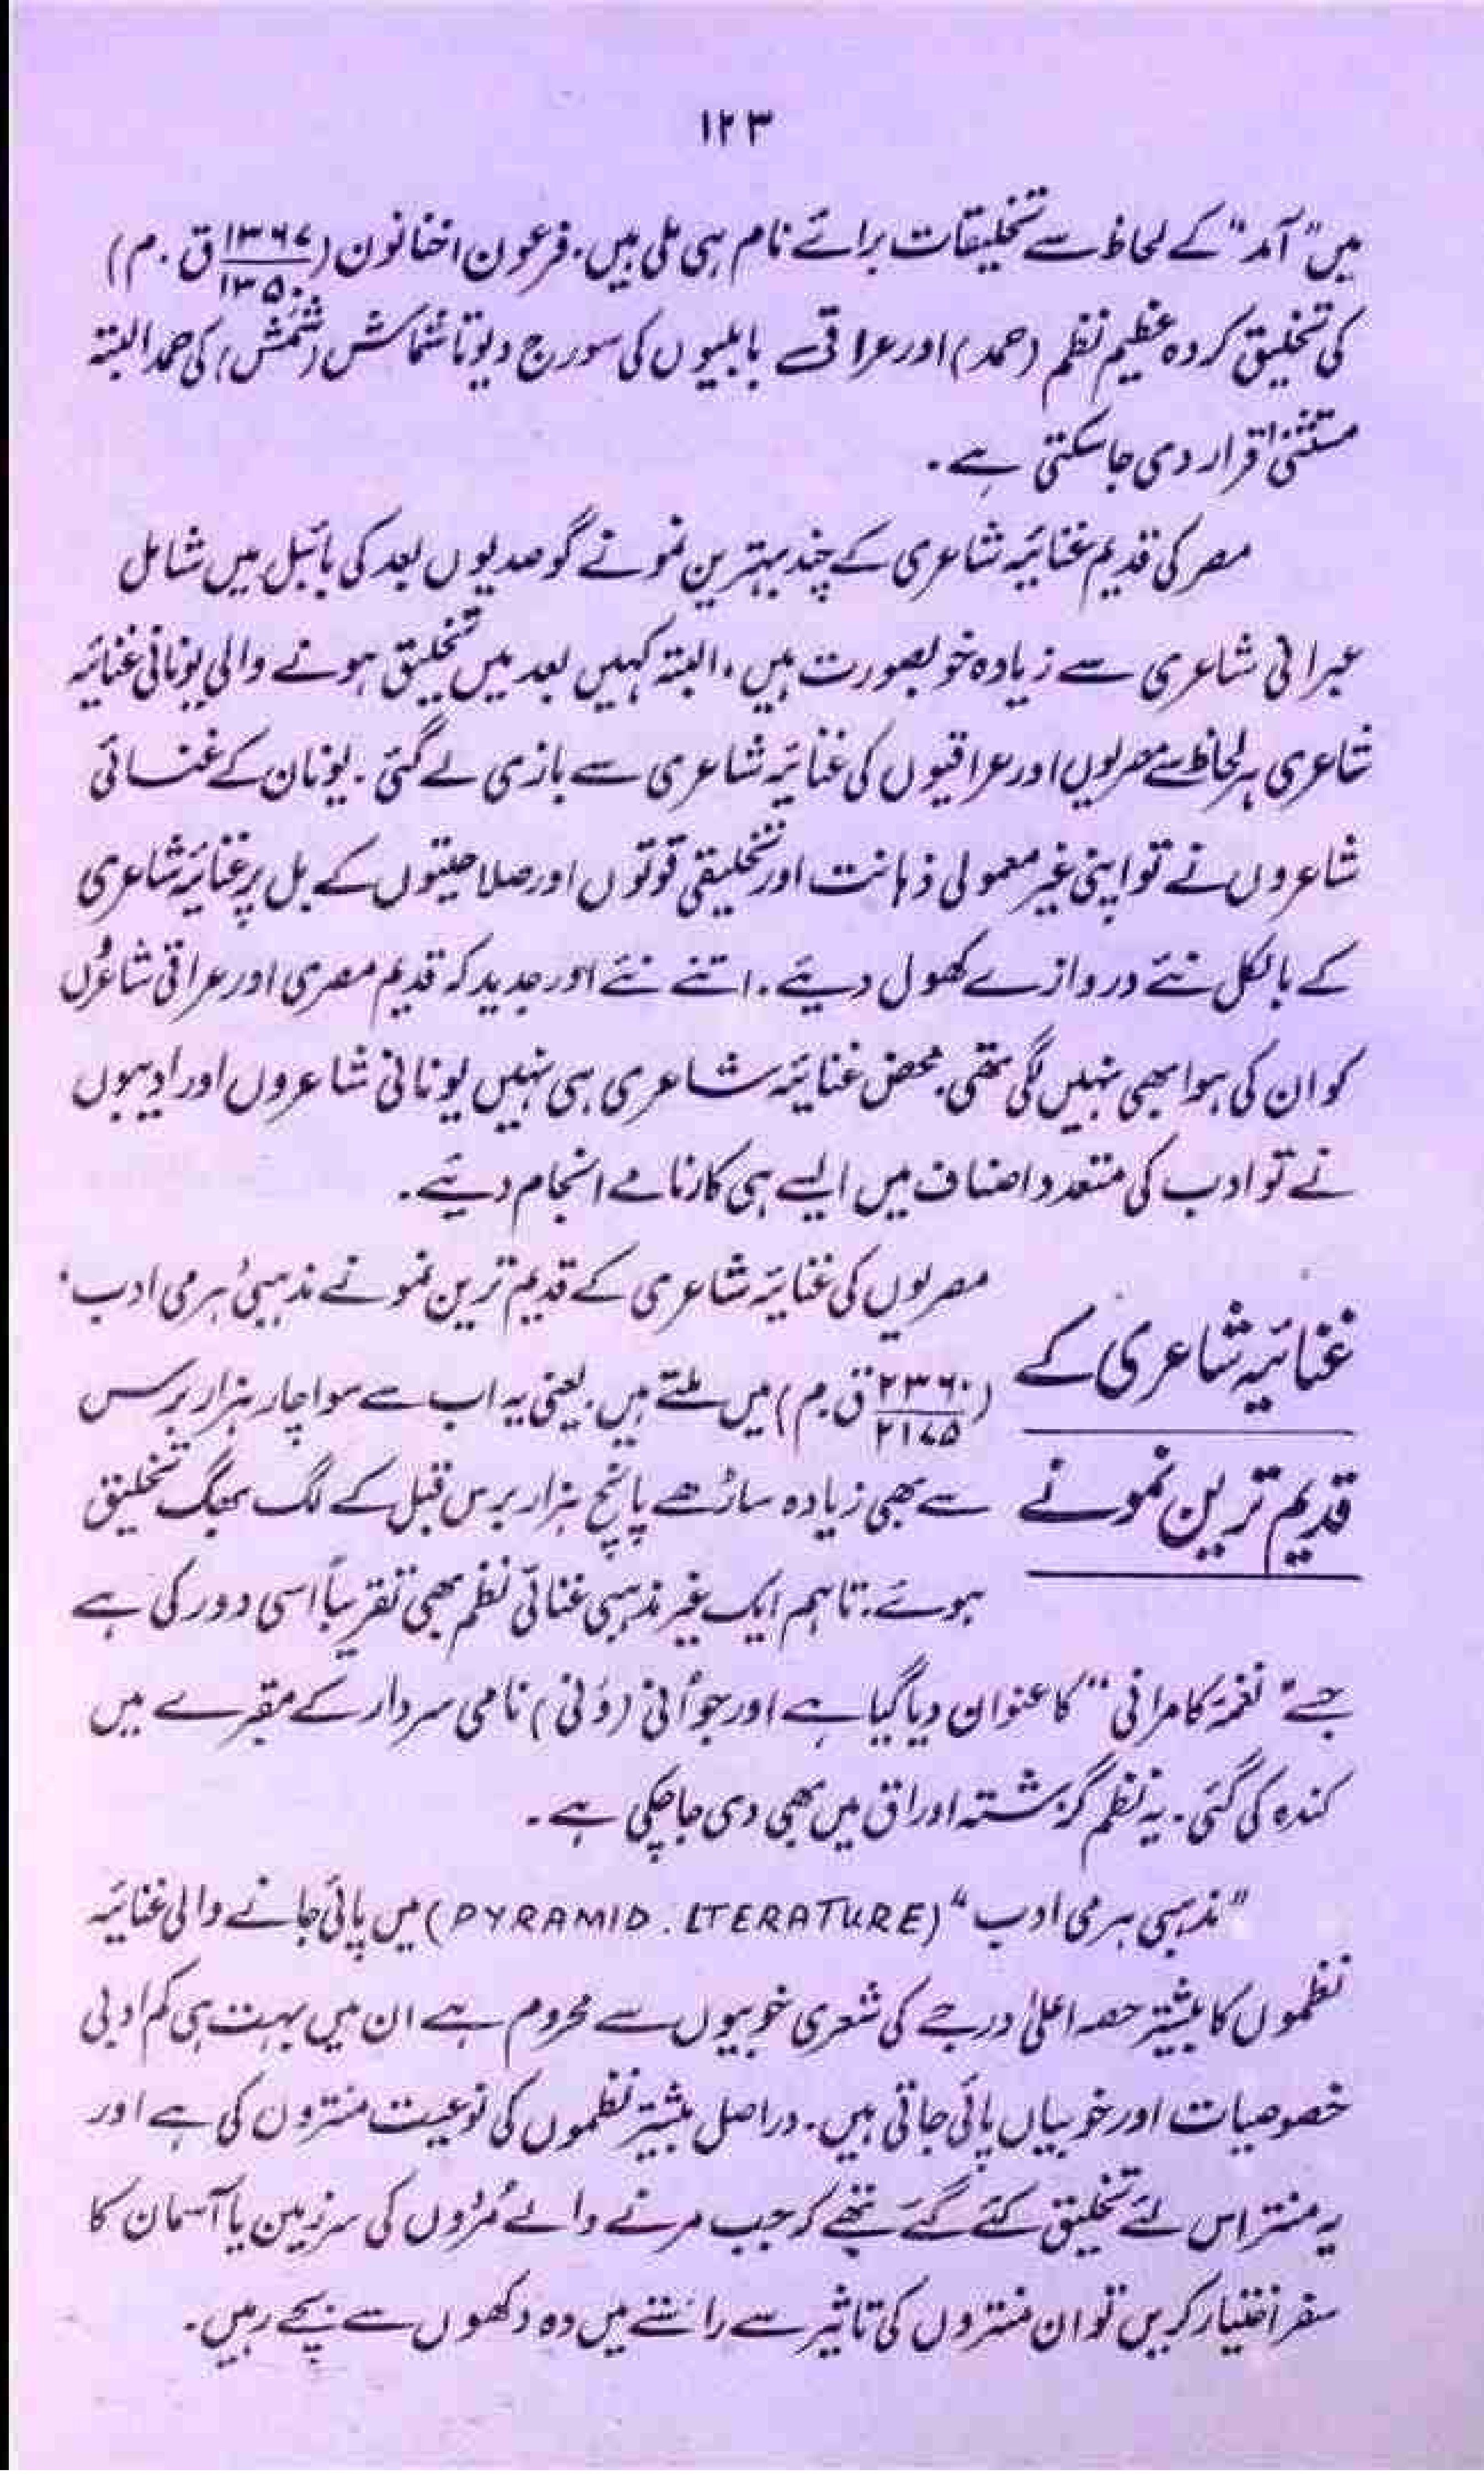 ۱۲۳
میں "آمد" کے لحاظ سے تخلیقات برائے نام ہی ملی ہیں۔ فرعون اخناتون (۱۳۶۷/۱۳۵۰ ق.م)
کی تخلیق کردہ عظیم نظم (حمد) اور عراق کے بابلیوں کی سورج دیوتا شماش (شَمَش) کی حمد البتہ
مستثنیٰ قرار دی جا سکتی ہے۔
مصر کی قدیم غنائیہ شاعری کے چند بہترین نمونے گو صدیوں بعد کی بائبل میں شامل
عبرانی شاعری سے زیادہ خوبصورت ہیں، البتہ کہیں بعد میں تخلیق ہونے والی یونانی غنائیہ
شاعری ہر لحاظ سے مصریوں اور عراقیوں کی غنائیہ شاعری سے بازی لے گئی۔ یونان کے غنائی
شاعروں نے تو اپنی غیر معمولی ذہانت اور تخلیقی قوتوں اور صلاحیتوں کے بل پر غنائیہ شاعری
کے بالکل نئے دروازے کھول دیئے۔ اتنے نئے اور جدید کہ قدیم مصری اور عراقی شاعروں
کو ان کی ہوا بھی نہیں لگی تھی۔ محض غنائیہ شاعری ہی نہیں یونانی شاعروں اور ادیبوں
نے تو ادب کی متعدد اصناف میں ایسے ہی کارنامے انجام دیئے۔
غنائیہ شاعری کے
قدیم ترین نمونے
مصریوں کی غنائیہ شاعری کے قدیم ترین نمونے مذہبی ہرمی ادب'
(۲۳۶۰/۲۱۷۵ ق.م) میں ملتے ہیں۔ یعنی یہ اب سے سوا چار ہزار برس
سے بھی زیادہ ساڑھے پانچ ہزار برس قبل کے لگ بھگ تخلیق
ہوئے۔ تاہم ایک غیر مذہبی غنائی نظم بھی تقریباً اسی دور کی ہے
جسے "نغمۂ کامرانی" کا عنوان دیا گیا ہے اور جو اُنی (وُنی) نامی سردار کے مقبرے میں
کندہ کی گئی۔ یہ نظم گزشتہ اوراق میں بھی دی جا چکی ہے۔
"مذہبی ہرمی ادب" (PYRAMID. LTERATURE) میں پائی جانے والی غنائیہ
نظموں کا بیشتر حصہ اعلیٰ درجے کی شعری خوبیوں سے محروم ہے ان میں بہت ہی کم ادبی
خصوصیات اور خوبیاں پائی جاتی ہیں۔ دراصل بیشتر نظموں کی نوعیت منتروں کی ہے اور
یہ منتر اس لئے تخلیق کئے گئے تھے کہ جب مرنے والے مُردوں کی سرزمین یا آسمان کا
سفر اختیار کریں تو ان منتروں کی تاثیر سے راستے میں وہ دکھوں سے بچے رہیں۔